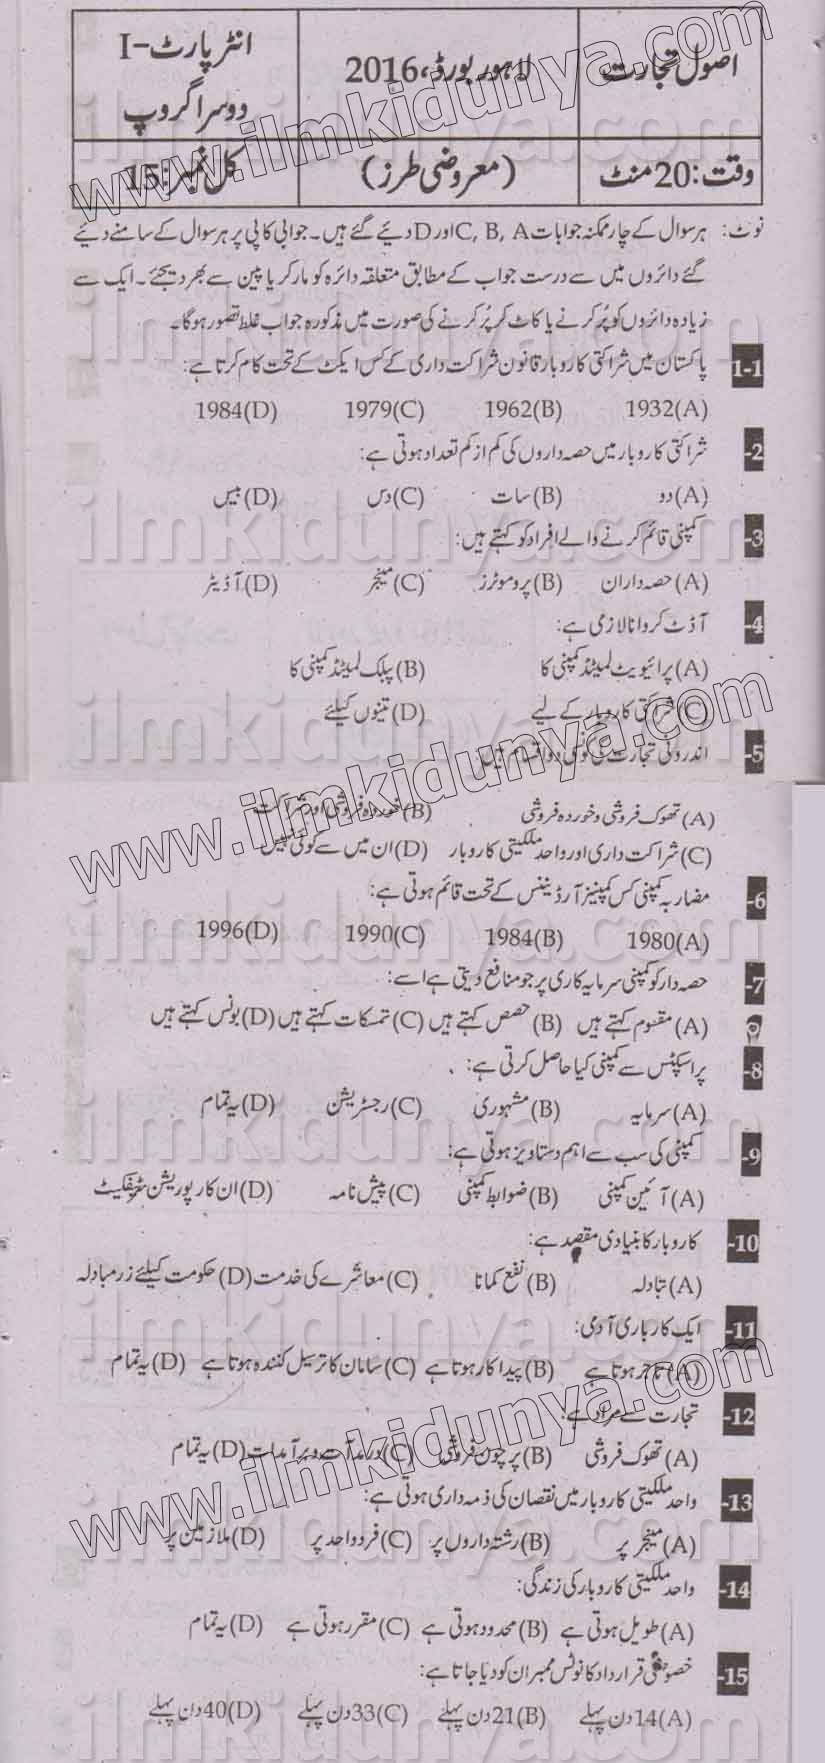 اصول تجارت
لاہور بورڈ، 2016
انٹر پارٹ-I
دوسرا گروپ
وقت: 20 منٹ
(معروضی طرز)
کل نمبر: 15
نوٹ: ہر سوال کے چار ممکنہ جوابات A, B, C اور D دیئے گئے ہیں۔ جوابی کاپی پر ہر سوال کے سامنے دیئے
گئے دائروں میں سے درست جواب کے مطابق متعلقہ دائرہ کو مارکر یا پین سے بھر دیجئے۔ ایک سے
زیادہ دائروں کو پُر کرنے یا کاٹ کر پُر کرنے کی صورت میں مذکورہ جواب غلط تصور ہوگا۔
1-1 پاکستان میں شراکتی کاروبار قانون شراکت داری کے کس ایکٹ کے تحت کام کرتا ہے:
(A) 1932 (B) 1962 (C) 1979 (D) 1984
-2 شراکتی کاروبار میں حصہ داروں کی کم از کم تعداد ہوتی ہے:
(A) دو (B) سات (C) دس (D) بیس
-3 کمپنی قائم کرنے والے افراد کو کہتے ہیں:
(A) حصہ داران (B) پروموٹرز (C) مینجر (D) آڈیٹر
-4 آڈٹ کروانا لازمی ہے:
(A) پرائیویٹ لمیٹڈ کمپنی کا (B) پبلک لمیٹڈ کمپنی کا
(C) شراکتی کاروبار کے لیے (D) تینوں کیلئے
-5 اندرونی تجارت کی کونسی دو اقسام ہیں:
(A) تھوک فروشی و خوردہ فروشی (B) خوردہ فروشی اور شراکت
(C) شراکت داری اور واحد ملکیتی کاروبار (D) ان میں سے کوئی نہیں
-6 مضاربہ کمپنی کس کمپنیز آرڈیننس کے تحت قائم ہوتی ہے:
(A) 1980 (B) 1984 (C) 1990 (D) 1996
-7 حصہ دار کو کمپنی سرمایہ کاری پر جو منافع دیتی ہے اسے:
(A) مقسوم کہتے ہیں (B) حصص کہتے ہیں (C) تمسکات کہتے ہیں (D) بونس کہتے ہیں
-8 پراسپکٹس سے کمپنی کیا حاصل کرتی ہے:
(A) سرمایہ (B) مشہوری (C) رجسٹریشن (D) یہ تمام
-9 کمپنی کی سب سے اہم دستاویز ہوتی ہے:
(A) آئین کمپنی (B) ضوابط کمپنی (C) پیش نامہ (D) ان کارپوریشن سرٹیفکیٹ
-10 کاروبار کا بنیادی مقصد ہے:
(A) تبادلہ (B) نفع کمانا (C) معاشرے کی خدمت (D) حکومت کیلئے زرمبادلہ
-11 ایک کارباری آدمی:
(A) تاجر ہوتا ہے (B) پیدا کار ہوتا ہے (C) سامان کا ترسیل کنندہ ہوتا ہے (D) یہ تمام
-12 تجارت سے مراد ہے:
(A) تھوک فروشی (B) پرچون فروشی (C) درآمدات و برآمدات (D) یہ تمام
-13 واحد ملکیتی کاروبار میں نقصان کی ذمہ داری ہوتی ہے:
(A) مینجر پر (B) رشتہ داروں پر (C) فرد واحد پر (D) ملازمین پر
-14 واحد ملکیتی کاروبار کی زندگی:
(A) طویل ہوتی ہے (B) محدود ہوتی ہے (C) مقرر ہوتی ہے (D) یہ تمام
-15 خصوصی قرارداد کا نوٹس ممبران کو دیا جاتا ہے:
(A) 14 دن پہلے (B) 21 دن پہلے (C) 33 دن پہلے (D) 40 دن پہلے
www.ilmkidunya.com
www.ilmkidunya.com
www.ilmkidunya.com